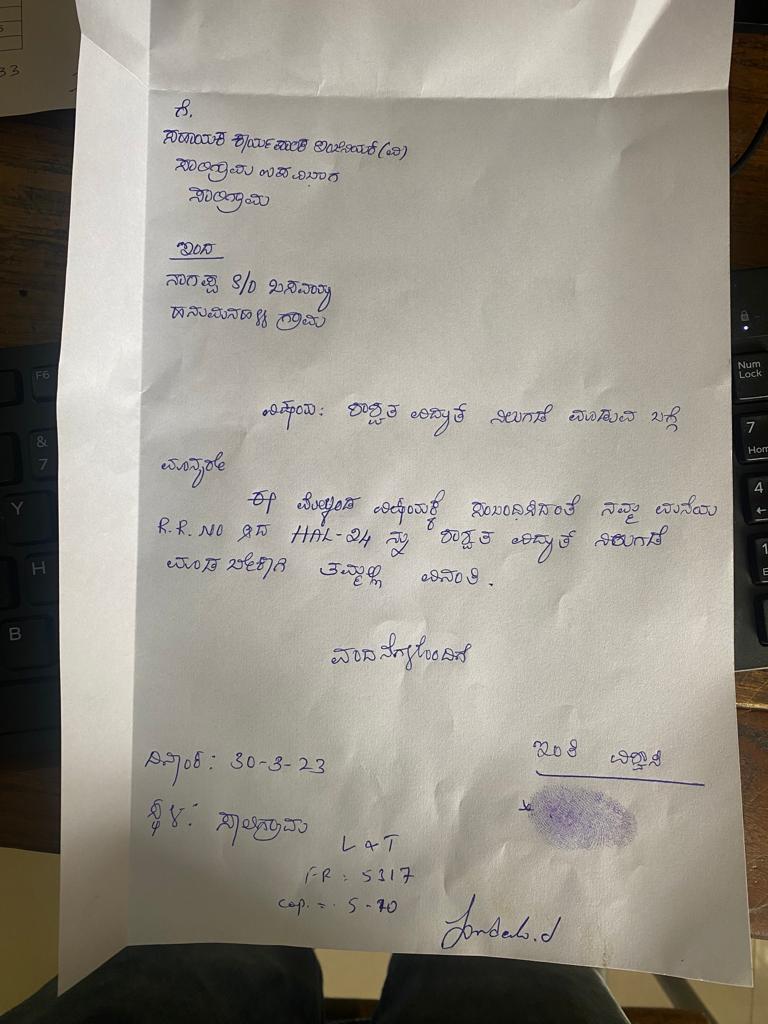 ಗೆ,
ಸಹಾಯಕ ಕಾರ್ಯಪಾಲಕ ಇಂಜಿನಿಯರ್ (ವಿ)
ಸಾಲಿಗ್ರಾಮ ಉಪ ವಿಭಾಗ
ಸಾಲಿಗ್ರಾಮ
ಇಂದ
ನಾಗಪ್ಪ S/O ಬಸವಯ್ಯ
ಹನುಮನಹಳ್ಳಿ ಗ್ರಾಮ
ವಿಷಯ: ಶಾಶ್ವತ ವಿದ್ಯುತ್ ನಿಲುಗಡೆ ಮಾಡುವ ಬಗ್ಗೆ
ಮಾನ್ಯರೇ
ಈ ಮೇಲ್ಕಂಡ ವಿಷಯಕ್ಕೆ ಸಂಬಂಧಿಸಿದಂತೆ ನಮ್ಮ ಮನೆಯ
R.R. NO ಆದ HAL-24 ನ್ನು ಶಾಶ್ವತ ವಿದ್ಯುತ್ ನಿಲುಗಡೆ
ಮಾಡಬೇಕಾಗಿ ತಮ್ಮಲ್ಲಿ ವಿನಂತಿ.
ವಂದನೆಗಳೊಂದಿಗೆ
ದಿನಾಂಕ: 30-3-23
ಇಂತಿ ವಿಶ್ವಾಸಿ
ಸ್ಥಳ: ಸಾಲಿಗ್ರಾಮ
L & T
FR: 5317
cap. = 5-70
F6
&
7
Y
H
B
Num
Lock
7
4
1
33